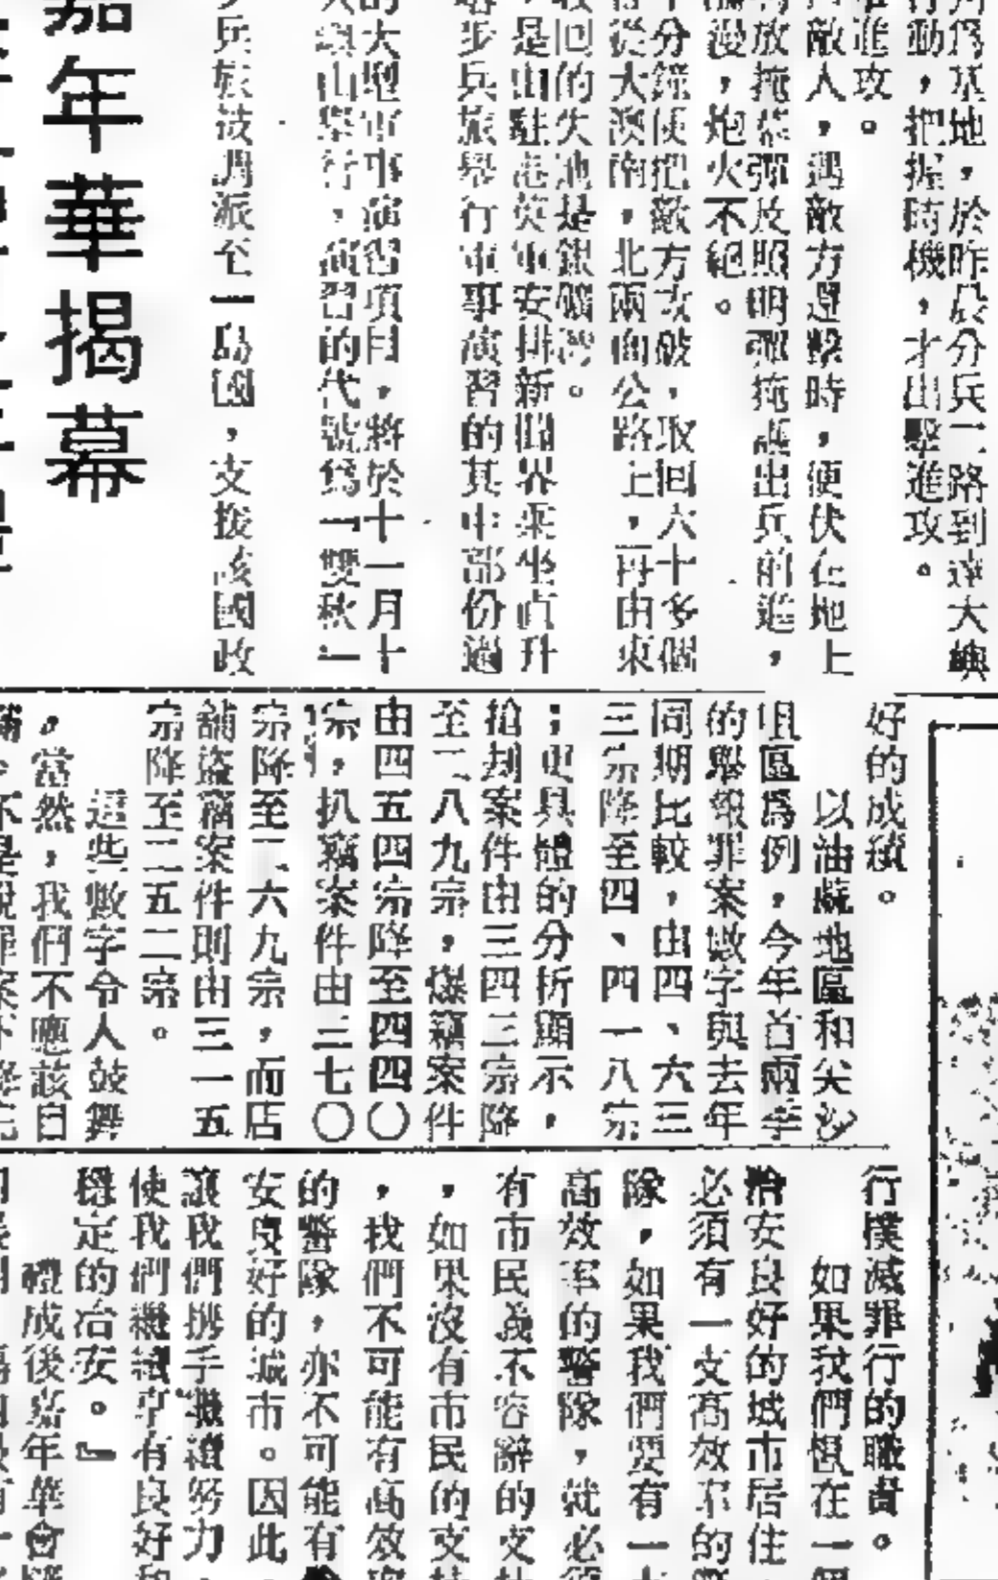 為基地，於昨晨分兵二路到達大嶼
行動，把握時機，才出擊進攻。
進攻。
敵人，遇敵方還擊時，便伏在地上
放掩彈及照明彈掩護出兵前進，
漫，炮火不絕。
分鐘便把敵方攻破，取回六十多個
從大澳南，北兩面公路上，再由東
收回的失地是銀礦灣。
是由駐港英軍安排新圍界
步兵旅舉行軍事演習的其中部份過
的大型軍事演習項目，將於十一月十
山舉行，演習的代號為「雙秋一
步兵旅被調派至一島國，支援該國政
嘉年華揭幕
好的成績。
以油蔴地區和尖沙
咀區為例，今年首兩季
的舉報罪案數字與去年
同期比較，由四、六三
三宗降至四、四一八宗
；更具體的分析顯示，
搶刧案件由三四三宗降
至二八九宗，爆竊案件
由四五四宗降至四四〇
宗，扒竊案件由三七〇
宗降至二六九宗，而店
舖盜竊案件則由三一五
宗降至二五二宗。
這些數字令人鼓舞
，當然，我們不應該自
行撲滅罪行的職責。
如果我們想在一個
治安良好的城市居住，
必須有一支高效率的警
隊，如果我們要有一
高效率的警隊，就必須
有市民義不容辭的支持
，如果沒有市民的支持
，我們不可能有高效率
的警隊，亦不可能有治
安良好的城市。因此，
讓我們携手繼續努力，
使我們繼續享有良好和
穩定的治安。』
禮成後嘉年華會隨